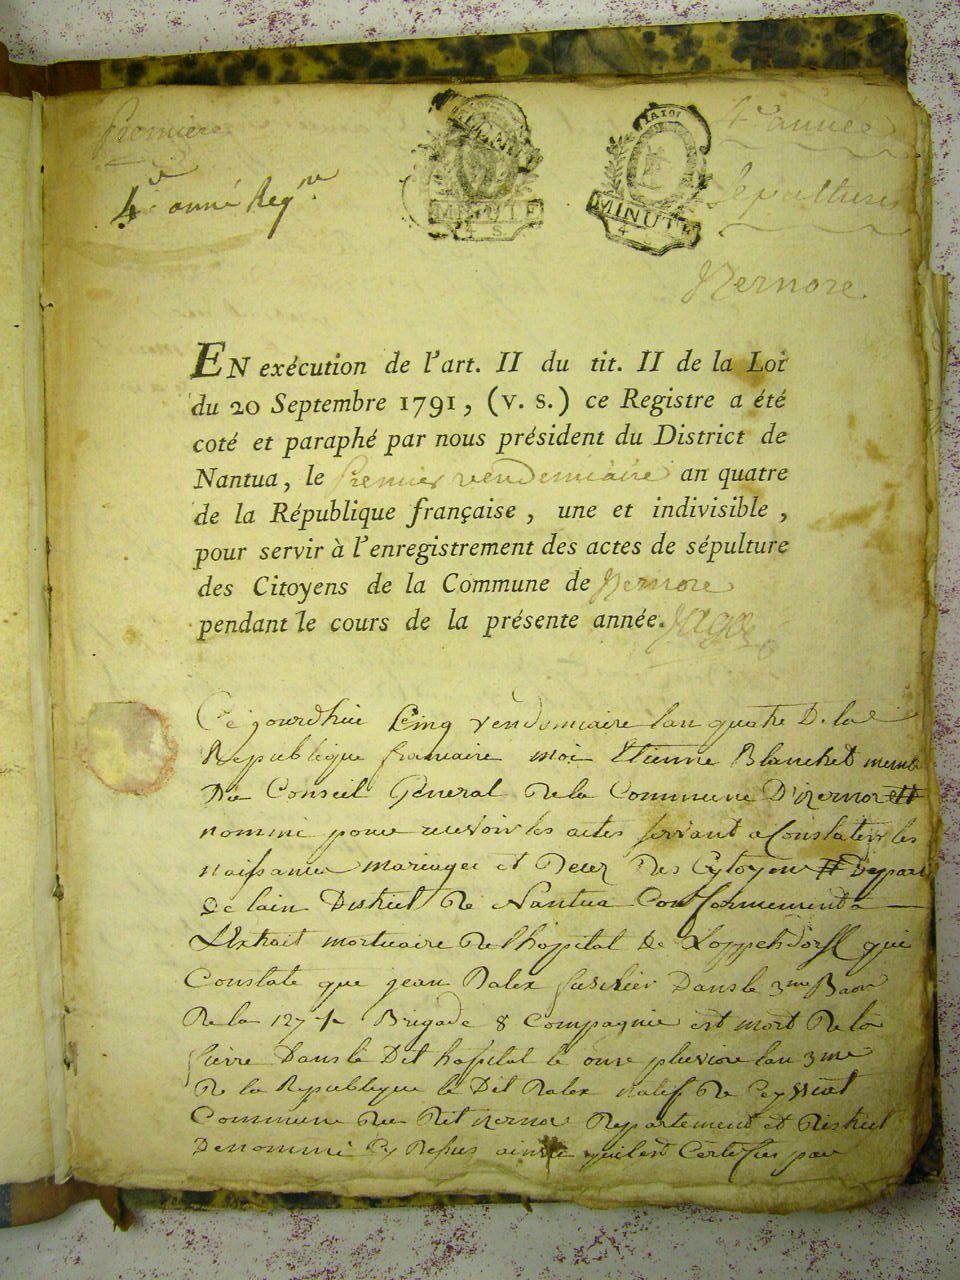 Premiere
4e anné Regre
MINUTE
4 S.
MINUTE
4
4e année
Sepultures
Izernore
EN exécution de l'art. II du tit. II de la Loi
du 20 Septembre 1791, (v. s.) ce Registre a été
coté et paraphé par nous président du District de
Nantua, le Premier vendemiaire an quatre
de la République française, une et indivisible,
pour servir à l'enregistrement des actes de sépulture
des Citoyens de la Commune de Izernore
pendant le cours de la présente année.
Ce jourdhui Cinq vendemiaire lan quatre De la
Republique francaise moi Etienne Blanchet memb
Du Conseil General De la Commune D'izernore #
nommé pour recevoir les actes servant a Constater les
naissances mariages et Decez Des Cytoyens # Depar
De lain District De Nantua Conformement a
LExtrait mortuaire De lhopital de qui
Constate que jean Ralex fusilier Dans le 3me Baon
De la 127 Brigade 8 Compagnie est mort De la
fievre Dans le Dit hopital le onze pluviose lan 3me
De la Republique le Dit Ralex natif De Ceyssiat
Commune Du Dit izernore Departement et District
Denommé Cy Dessus ainsi quil est Certifier par